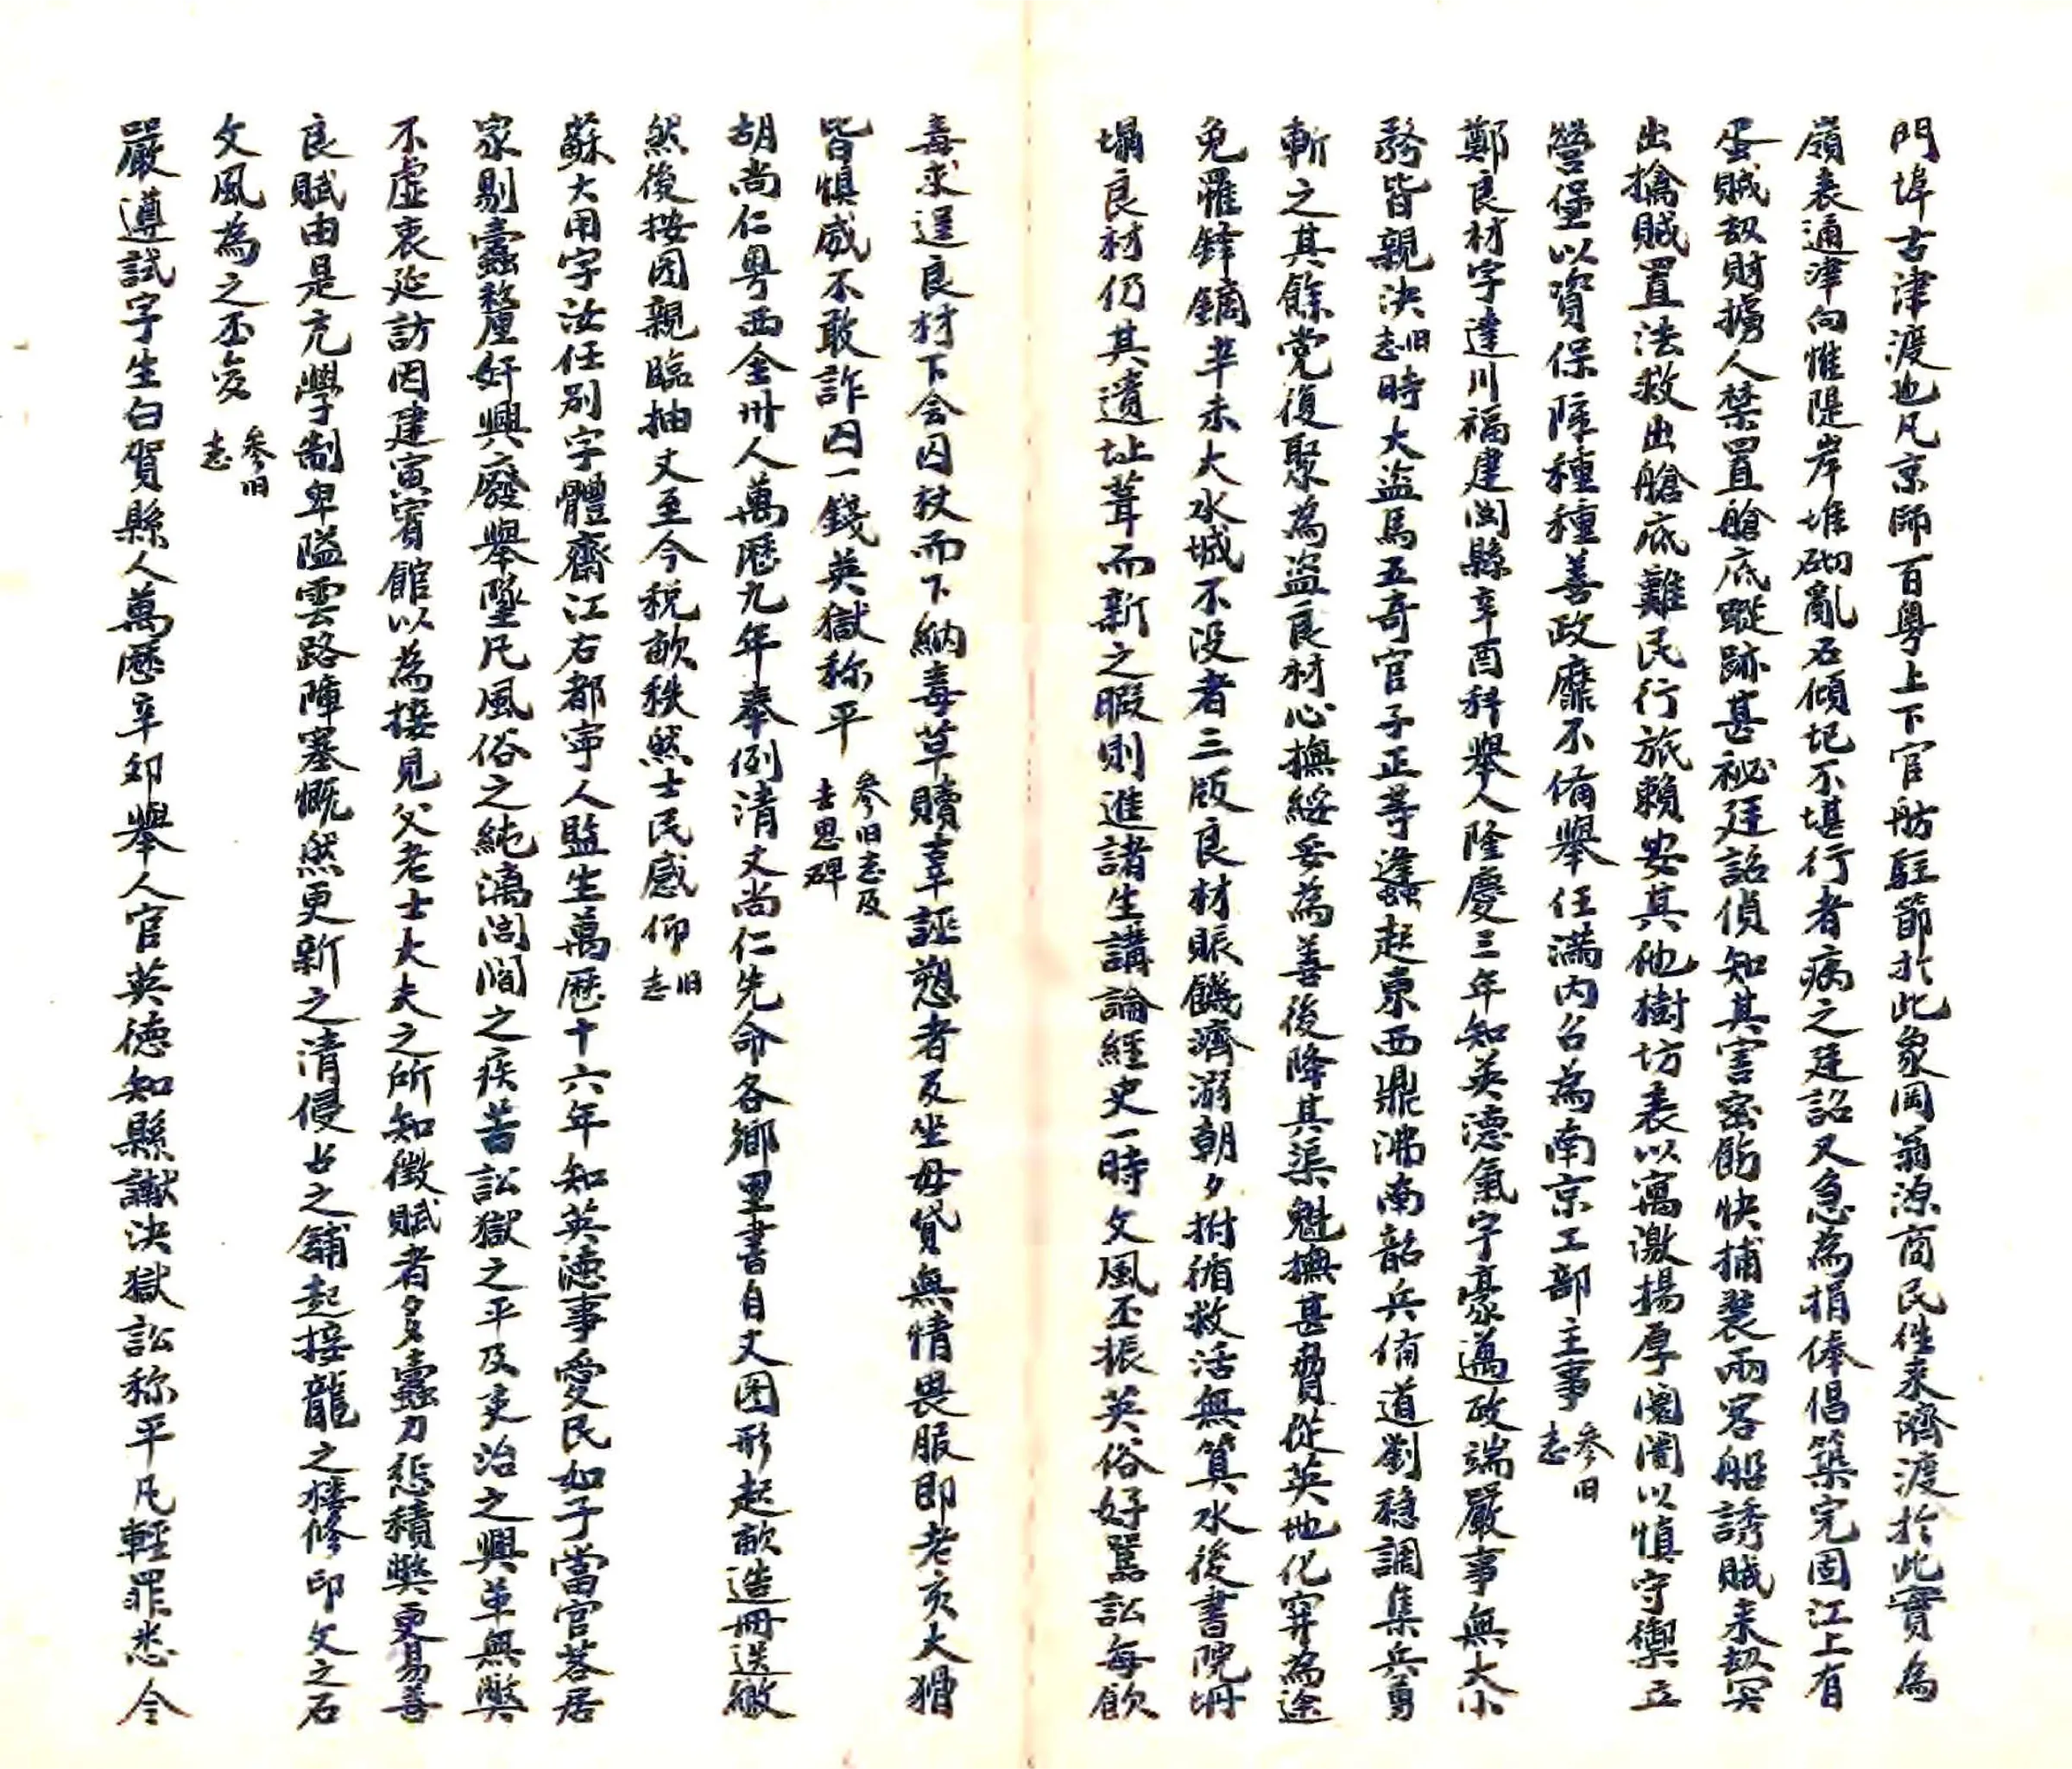 門埠古津渡也凡京師百粵上下官舫駐節於此象岡翁源商民徃來濟渡於此實為
嶺表通津向惟隄岸堆砌亂石傾圮不堪行者病之廷詔又急為捐俸倡築完固江上有
蛋賊刼財擄人禁置艙底蹤跡甚祕廷詔偵知其害密飭快捕裝兩客船誘賊来刼突
出擒賊置法救出艙底難民行旅賴安其他樹坊表以寓激揚厚闉闍以慎守禦立
營堡以資保障種種善政靡不俻舉任滿内召為南京工部主事參旧志
鄭良材字達川福建閩縣辛酉科舉人隆慶三年知英德氣宇豪邁政端嚴事無大小
務皆親決旧志時大盗馬五奇官子正等逢起東西鼎沸南韶兵俻道劉穏調集兵勇
斬之其餘党復聚為盗良材心撫綏妥為善後降其渠魁撫甚脅從英地化穽為途
免罹鋒鏑辛未大水城不没者三版良材賑饑濟溺朝夕拊循救活無算水後書院坍
塌良材仍其遺址葺而新之暇則進諸生講論經史一時文風丕振英俗好駡訟每飲
毒求逞良材下令囚杖而下納毒草贖辜誣愬者反坐毋貸無情畏服即老亥大猾
皆惧威不敢詐囚一錢英獄称平參旧志及去思碑
胡尚仁粤西全州人萬厯九年奉例清丈尚仁先命各鄉里書自丈图形起畝造冊送繳
然後按图親臨抽丈至今税畝秩然士民感仰旧志
蘇大用字汝任别字體齋江右都寧人監生萬厯十六年知英德事愛民如子當官若居
家剔蠹釐奸興廢舉墜凡風俗之純漓閭閻之疾苦訟獄之平及吏治之興革無弊
不虚衷延訪因建寅賓館以為接見父老士大夫之所知徵賦者多蠹力懲積弊更易善
良賦由是充學制卑隘雲路陣塞慨然更新之清侵占之舖起接龍之樓修印文之石
文風為之丕变參旧志
嚴遵試字生白賀縣人萬厯辛卯舉人官英德知縣讞決獄訟称平凡輕罪悉令